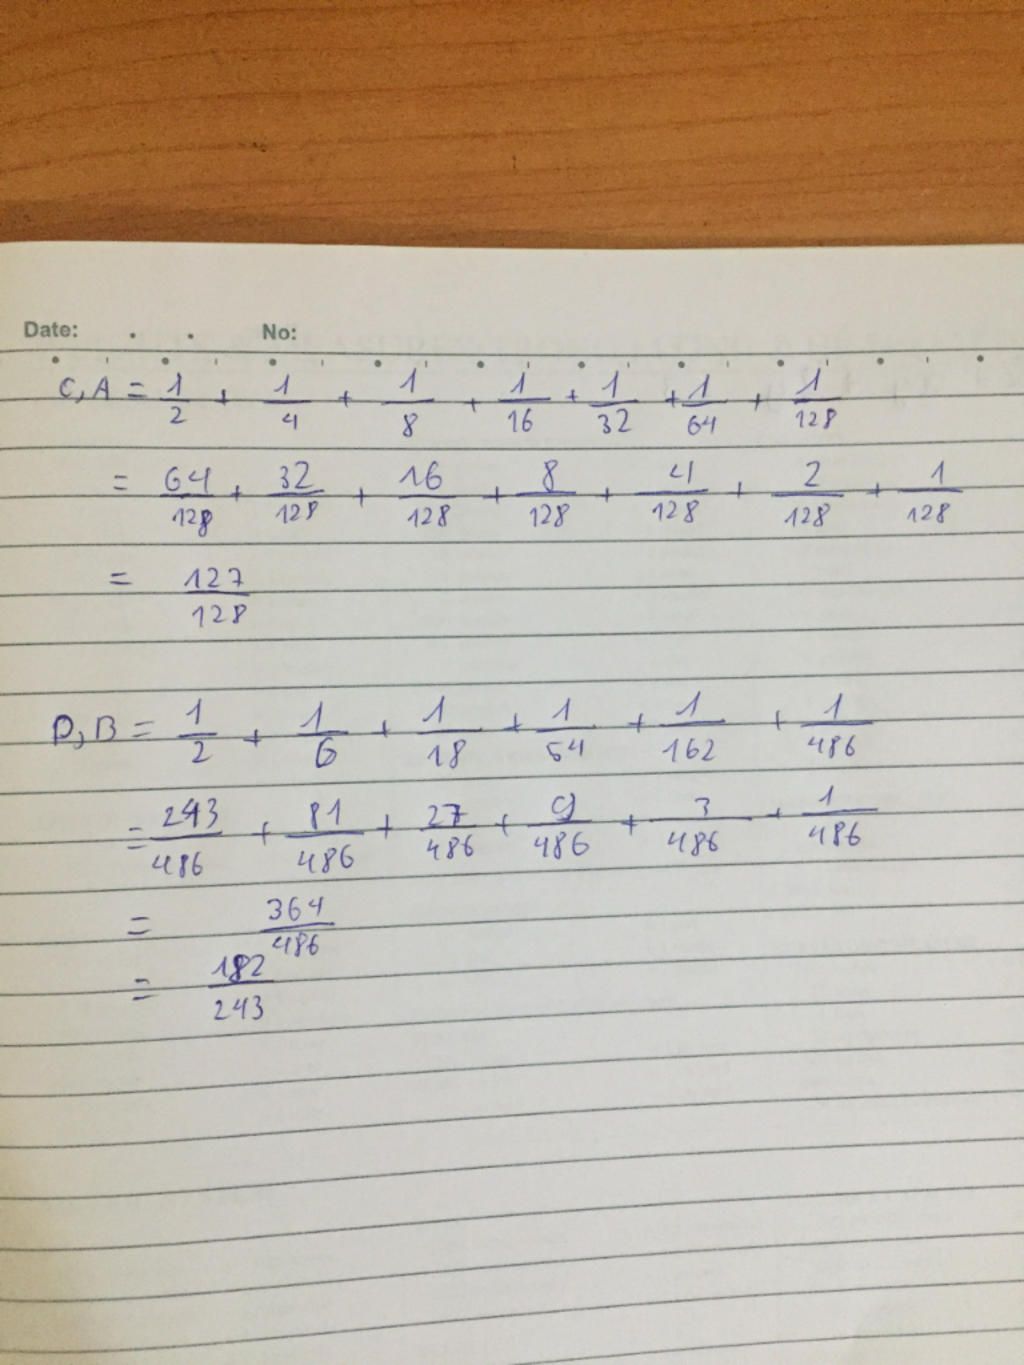 Date: No:
C, A = 1/2 + 1/4 + 1/8 + 1/16 + 1/32 + 1/64 + 1/128
= 64/128 + 32/128 + 16/128 + 8/128 + 4/128 + 2/128 + 1/128
= 127/128
D, B = 1/2 + 1/6 + 1/18 + 1/54 + 1/162 + 1/486
= 243/486 + 81/486 + 27/486 + 9/486 + 3/486 + 1/486
= 364/486
= 182/243